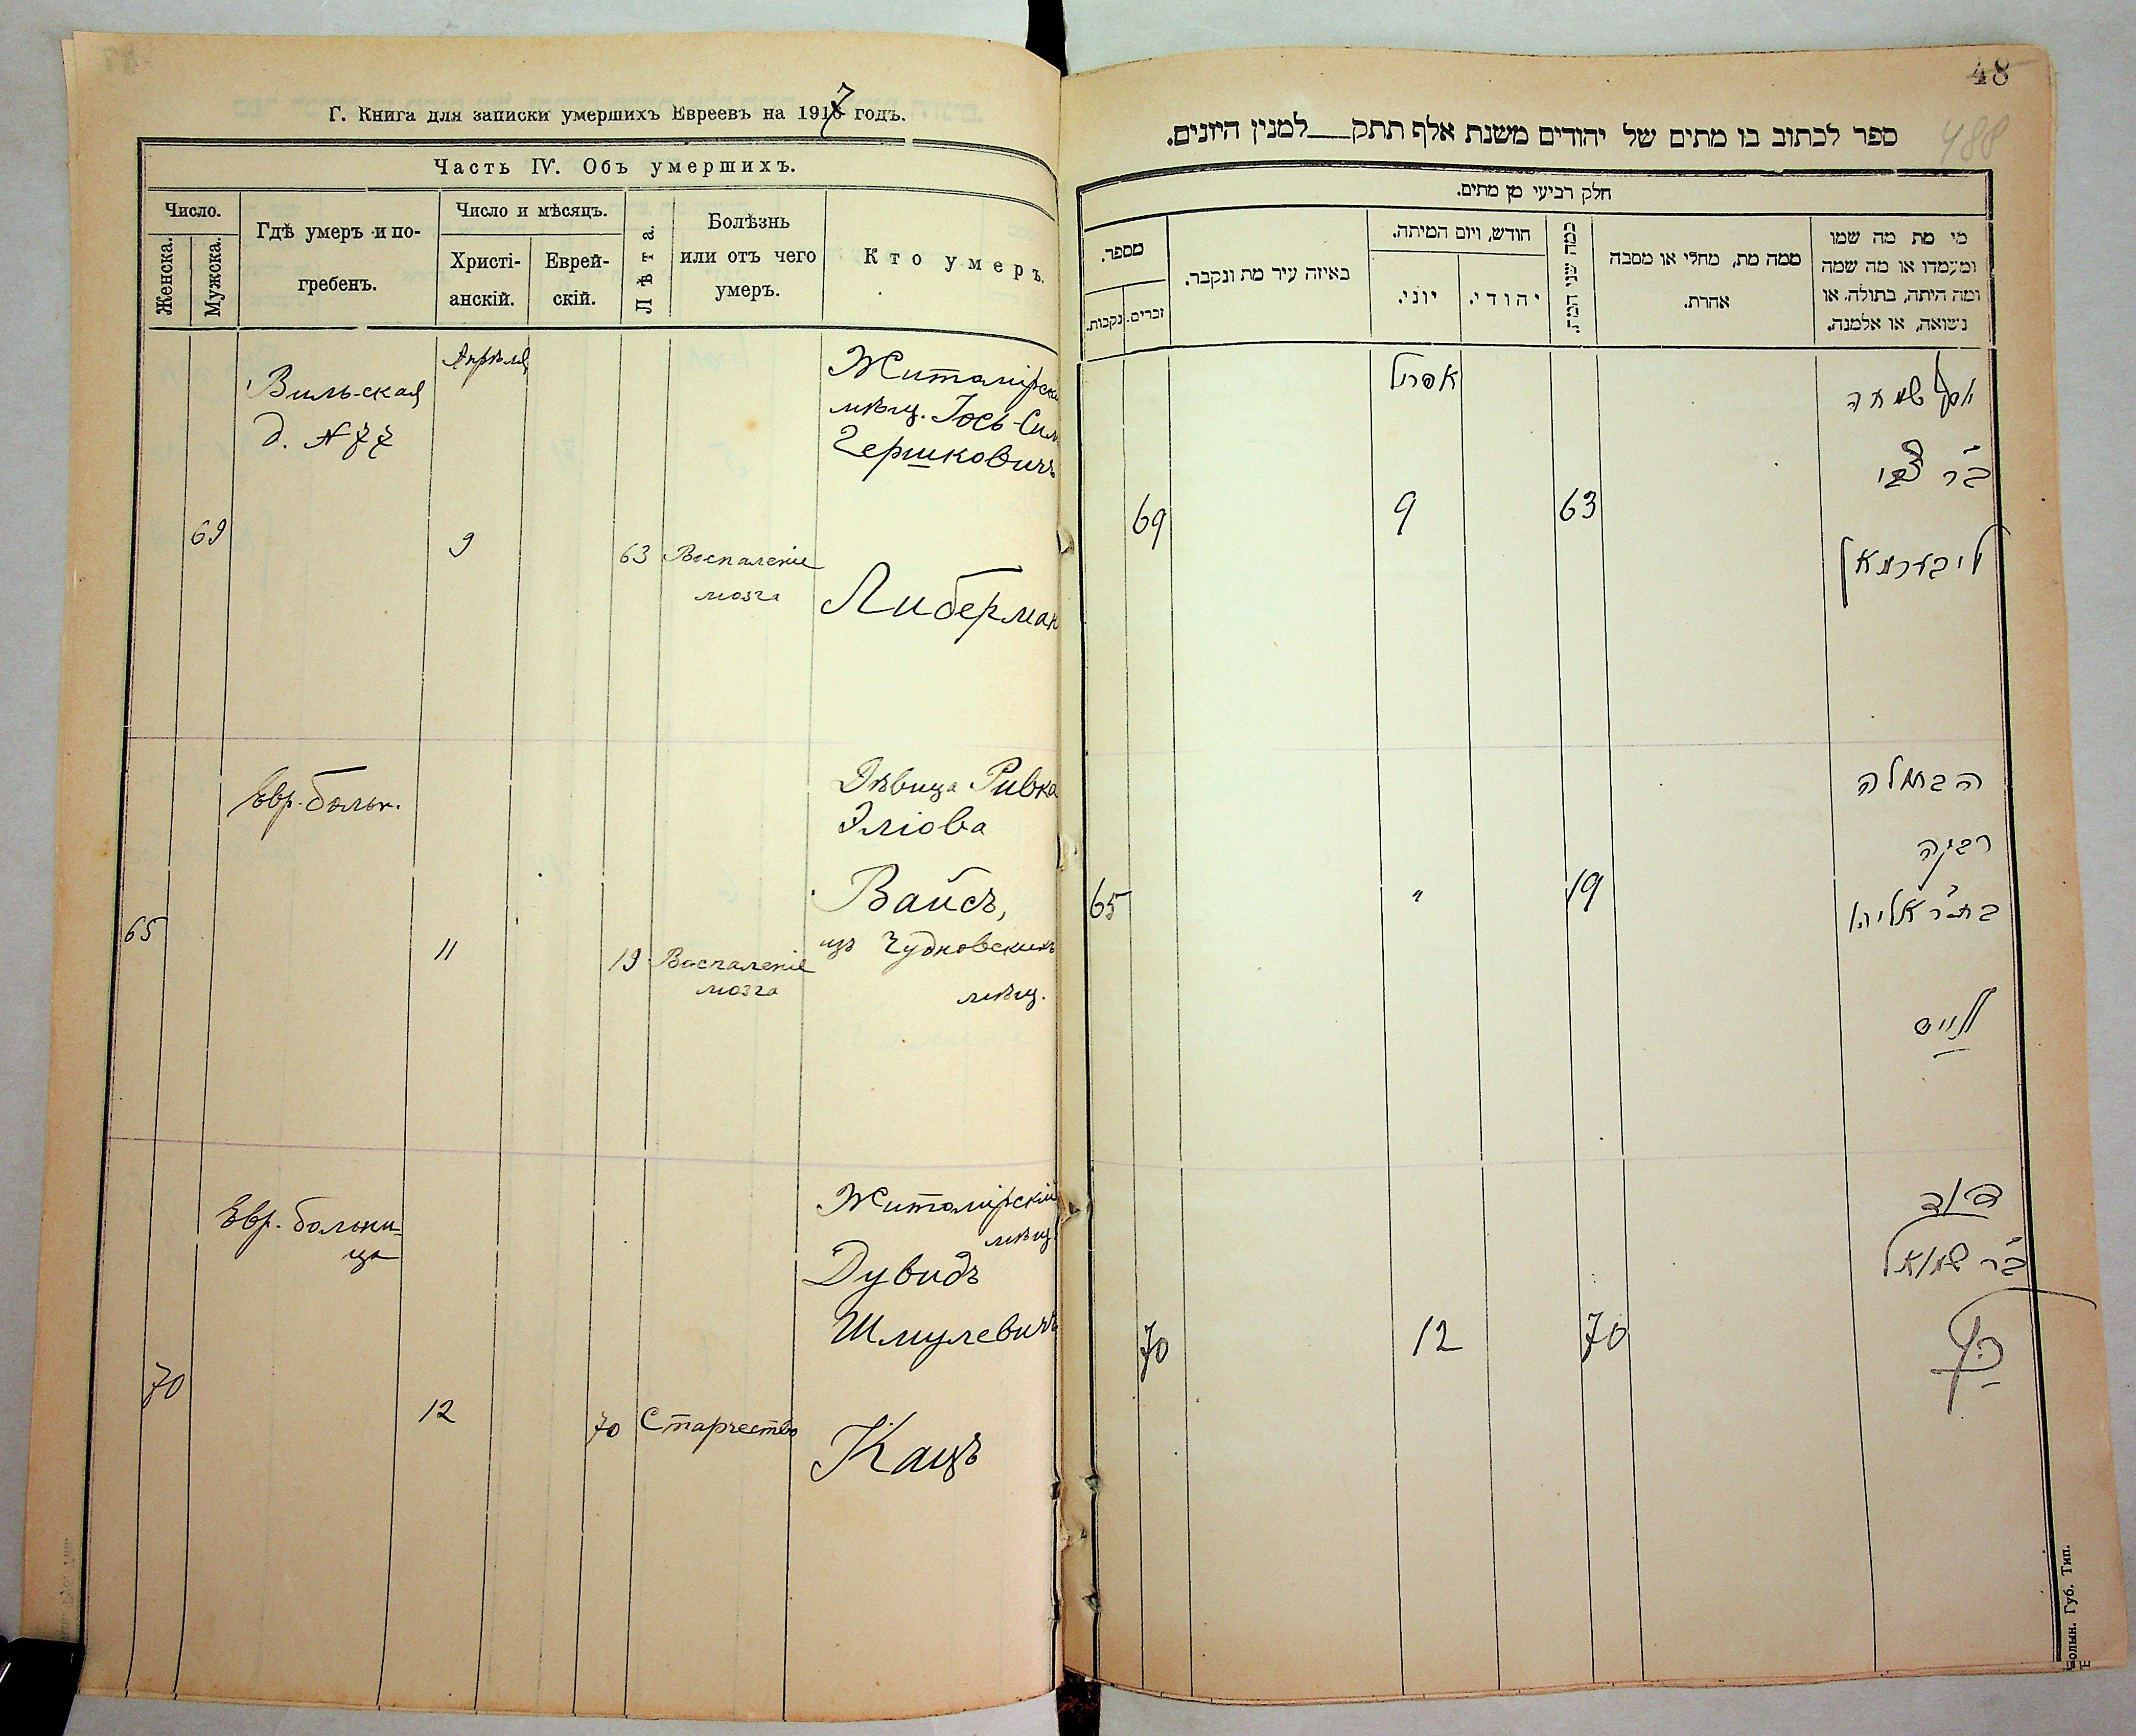 Г. Книга для записки умершихъ Евреевъ на 1917 годъ.
Часть IV. Объ умершихъ.
Число.
Женска.
Мужска.
Гдѣ умеръ и по-
гребенъ.
Число и мѣсяцъ.
Христі-
анскій.
Еврей-
скій.
Лѣта.
Болѣзнь
или отъ чего
умеръ.
Кто умеръ.
Вильская
д. № 77
Апрѣля
69
9
63
Воспаленіе
мозга
Житомірскі
мѣщ. Іось-Сим
Гершковичъ
Либерман
Евр. больн.
65
11
19
Воспаленіе
мозга
Дѣвица Ривка
Эліова
Вайсъ,
изъ Чудновскихъ
мѣщ.
Евр. больни-
ца
70
12
70
Старчество
Житомірскій
мѣщ.
Дувидъ
Шмулевичъ
Кацъ
48
488
ספר לכתוב בו מתים של יהודים משנת אלף תתק___למנין היונים.
חלק רביעי מן מתים.
מספר.
נקבות.
זכרים.
באיזה עיר מת ונקבר.
חודש, ויום המיתה.
יוני.
יהודי.
כמה שני המת.
ממה מת, מחלי או מסבה
אהרת.
מי מת מה שמו
ומעמדו או מה שמה
ומה היתה, בתולה, או
נשואה, או אלמנה.
אפריל
69
9
63
יוסף שמחה
ב"ר צבי
ליבערמאן
65
"
19
הבתולה
רבקה
בת ר' אליהו
ווייס
70
12
70
דוד
ב"ר שמואל
כ"ץ
Волын. Губ. Тип.